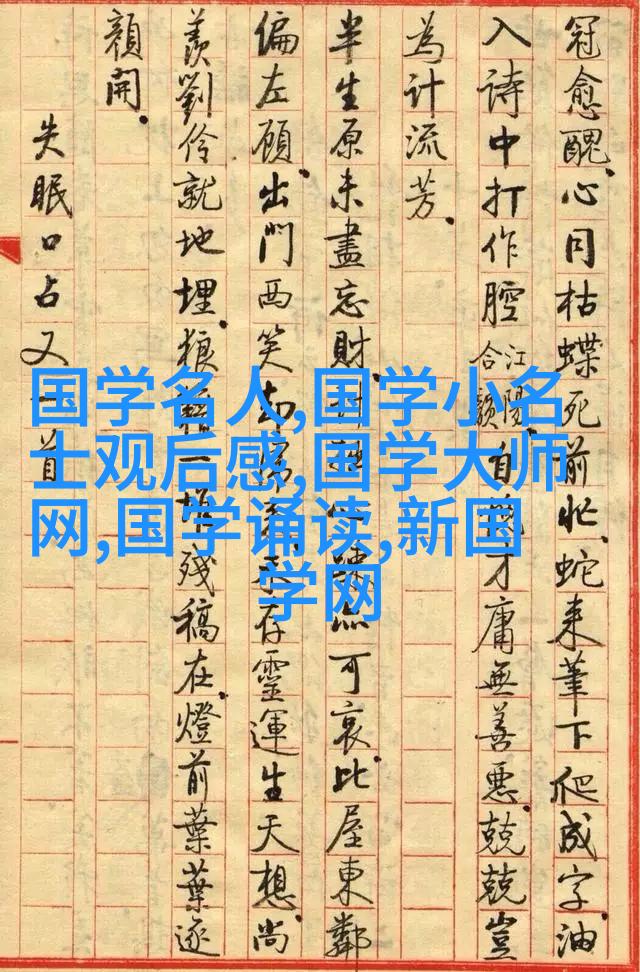 冠愈醜、心同枯蝶死前忙、蛇来筆下爬成字、油
入詩中打作腔江陽合韻、自才庸無善惡、兢兢豈
為計流芳。
半生原未盡忘財、可哀、比屋東鄰
偏左顧、出門西笑却存靈運生天想、尚
羨劉伶就地埋、狼藉一堆殘稿在、燈前葉葉逐
顏開。
失眠口占又一首
国学名人,国学小名
士观后感,国学大师
网,国学诵读,新国
学网